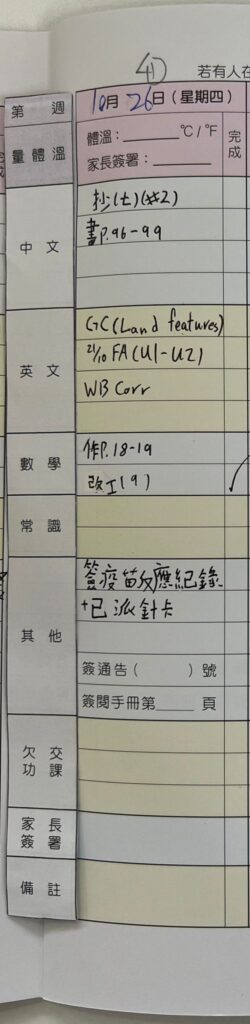 若有人在
第 週
10月 26日(星期四)
量體溫
體溫：______ ℃/℉
家長簽署：______
完成
中文
抄(七)(※2)
書P.96-99
英文
GC(Land features)
21/10 FA(U1-U2)
WB Corr
數學
作P.18-19
改工(9)
常識
其他
簽疫苗反應紀錄
+已派針卡
簽通告( )號
簽閱手冊第____頁
欠交功課
家長簽署
備註